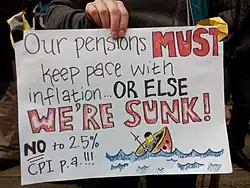 Our pensions MUST
keep pace with
inflation... OR ELSE
WE'RE SUNK!
NO to 2.5%
CPI p.a.!!!